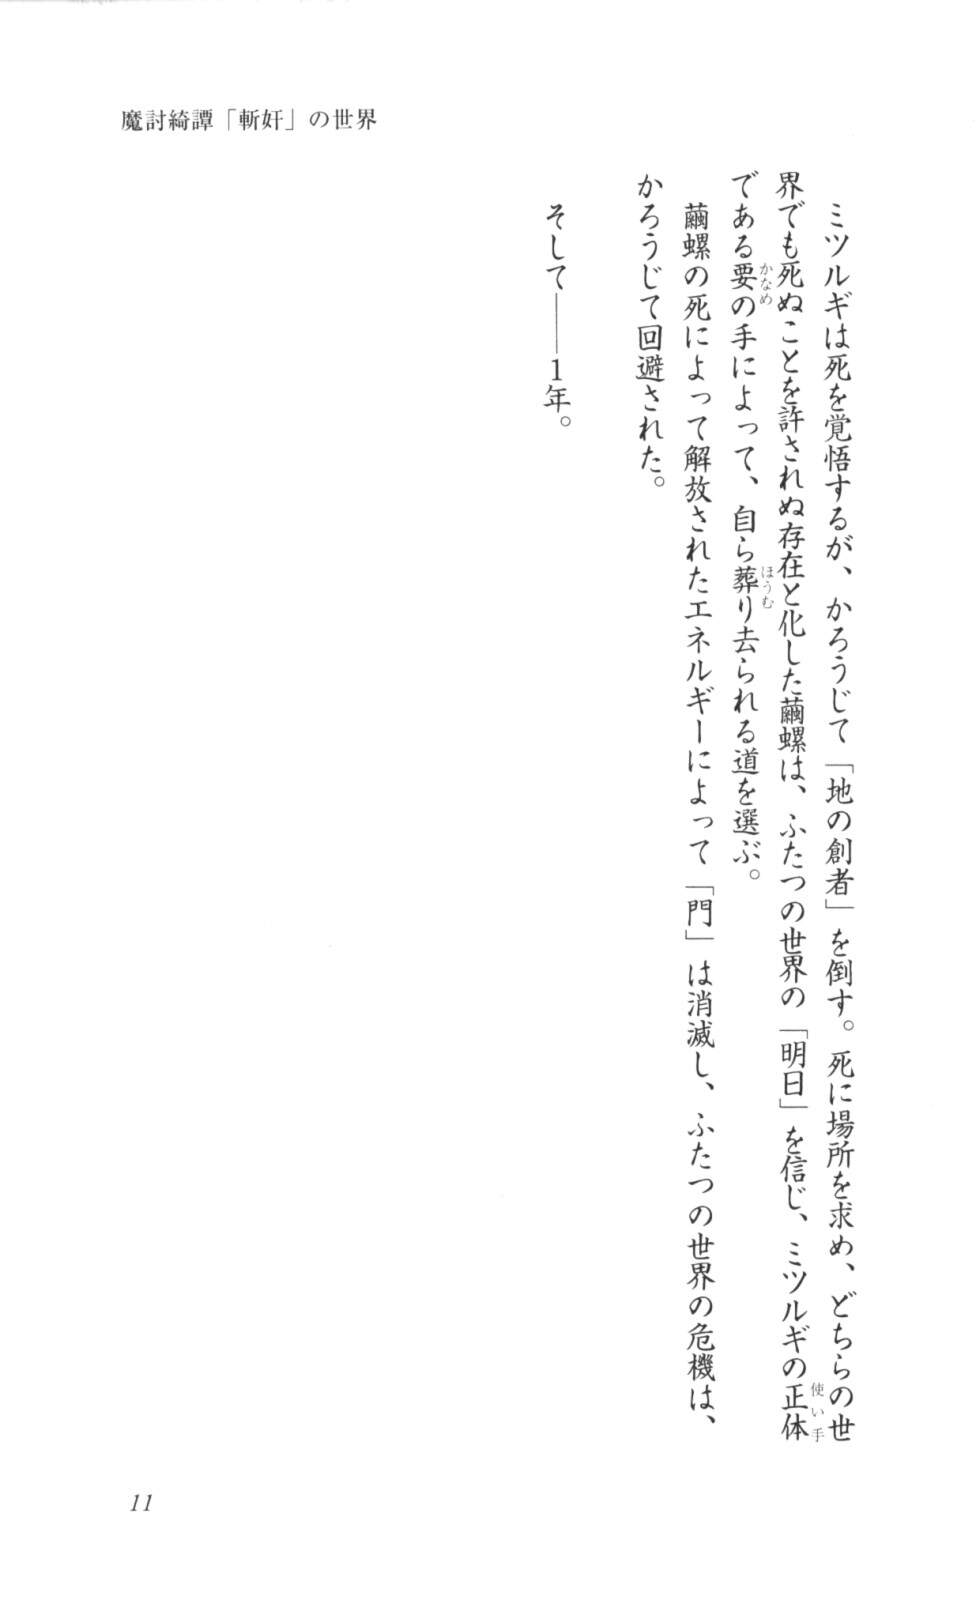 魔討綺譚「斬奸」の世界
ミツルギは死を覚悟するが、かろうじて「地の創者」を倒す。死に場所を求め、どちらの世
界でも死ぬことを許されぬ存在と化した繭螺は、ふたつの世界の「明日」を信じ、ミツルギの正体
使い手
である要の手によって、自ら葬り去られる道を選ぶ。
かなめ
ほうむ
繭螺の死によって解放されたエネルギーによって「門」は消滅し、ふたつの世界の危機は、
かろうじて回避された。
そして――1年。
11